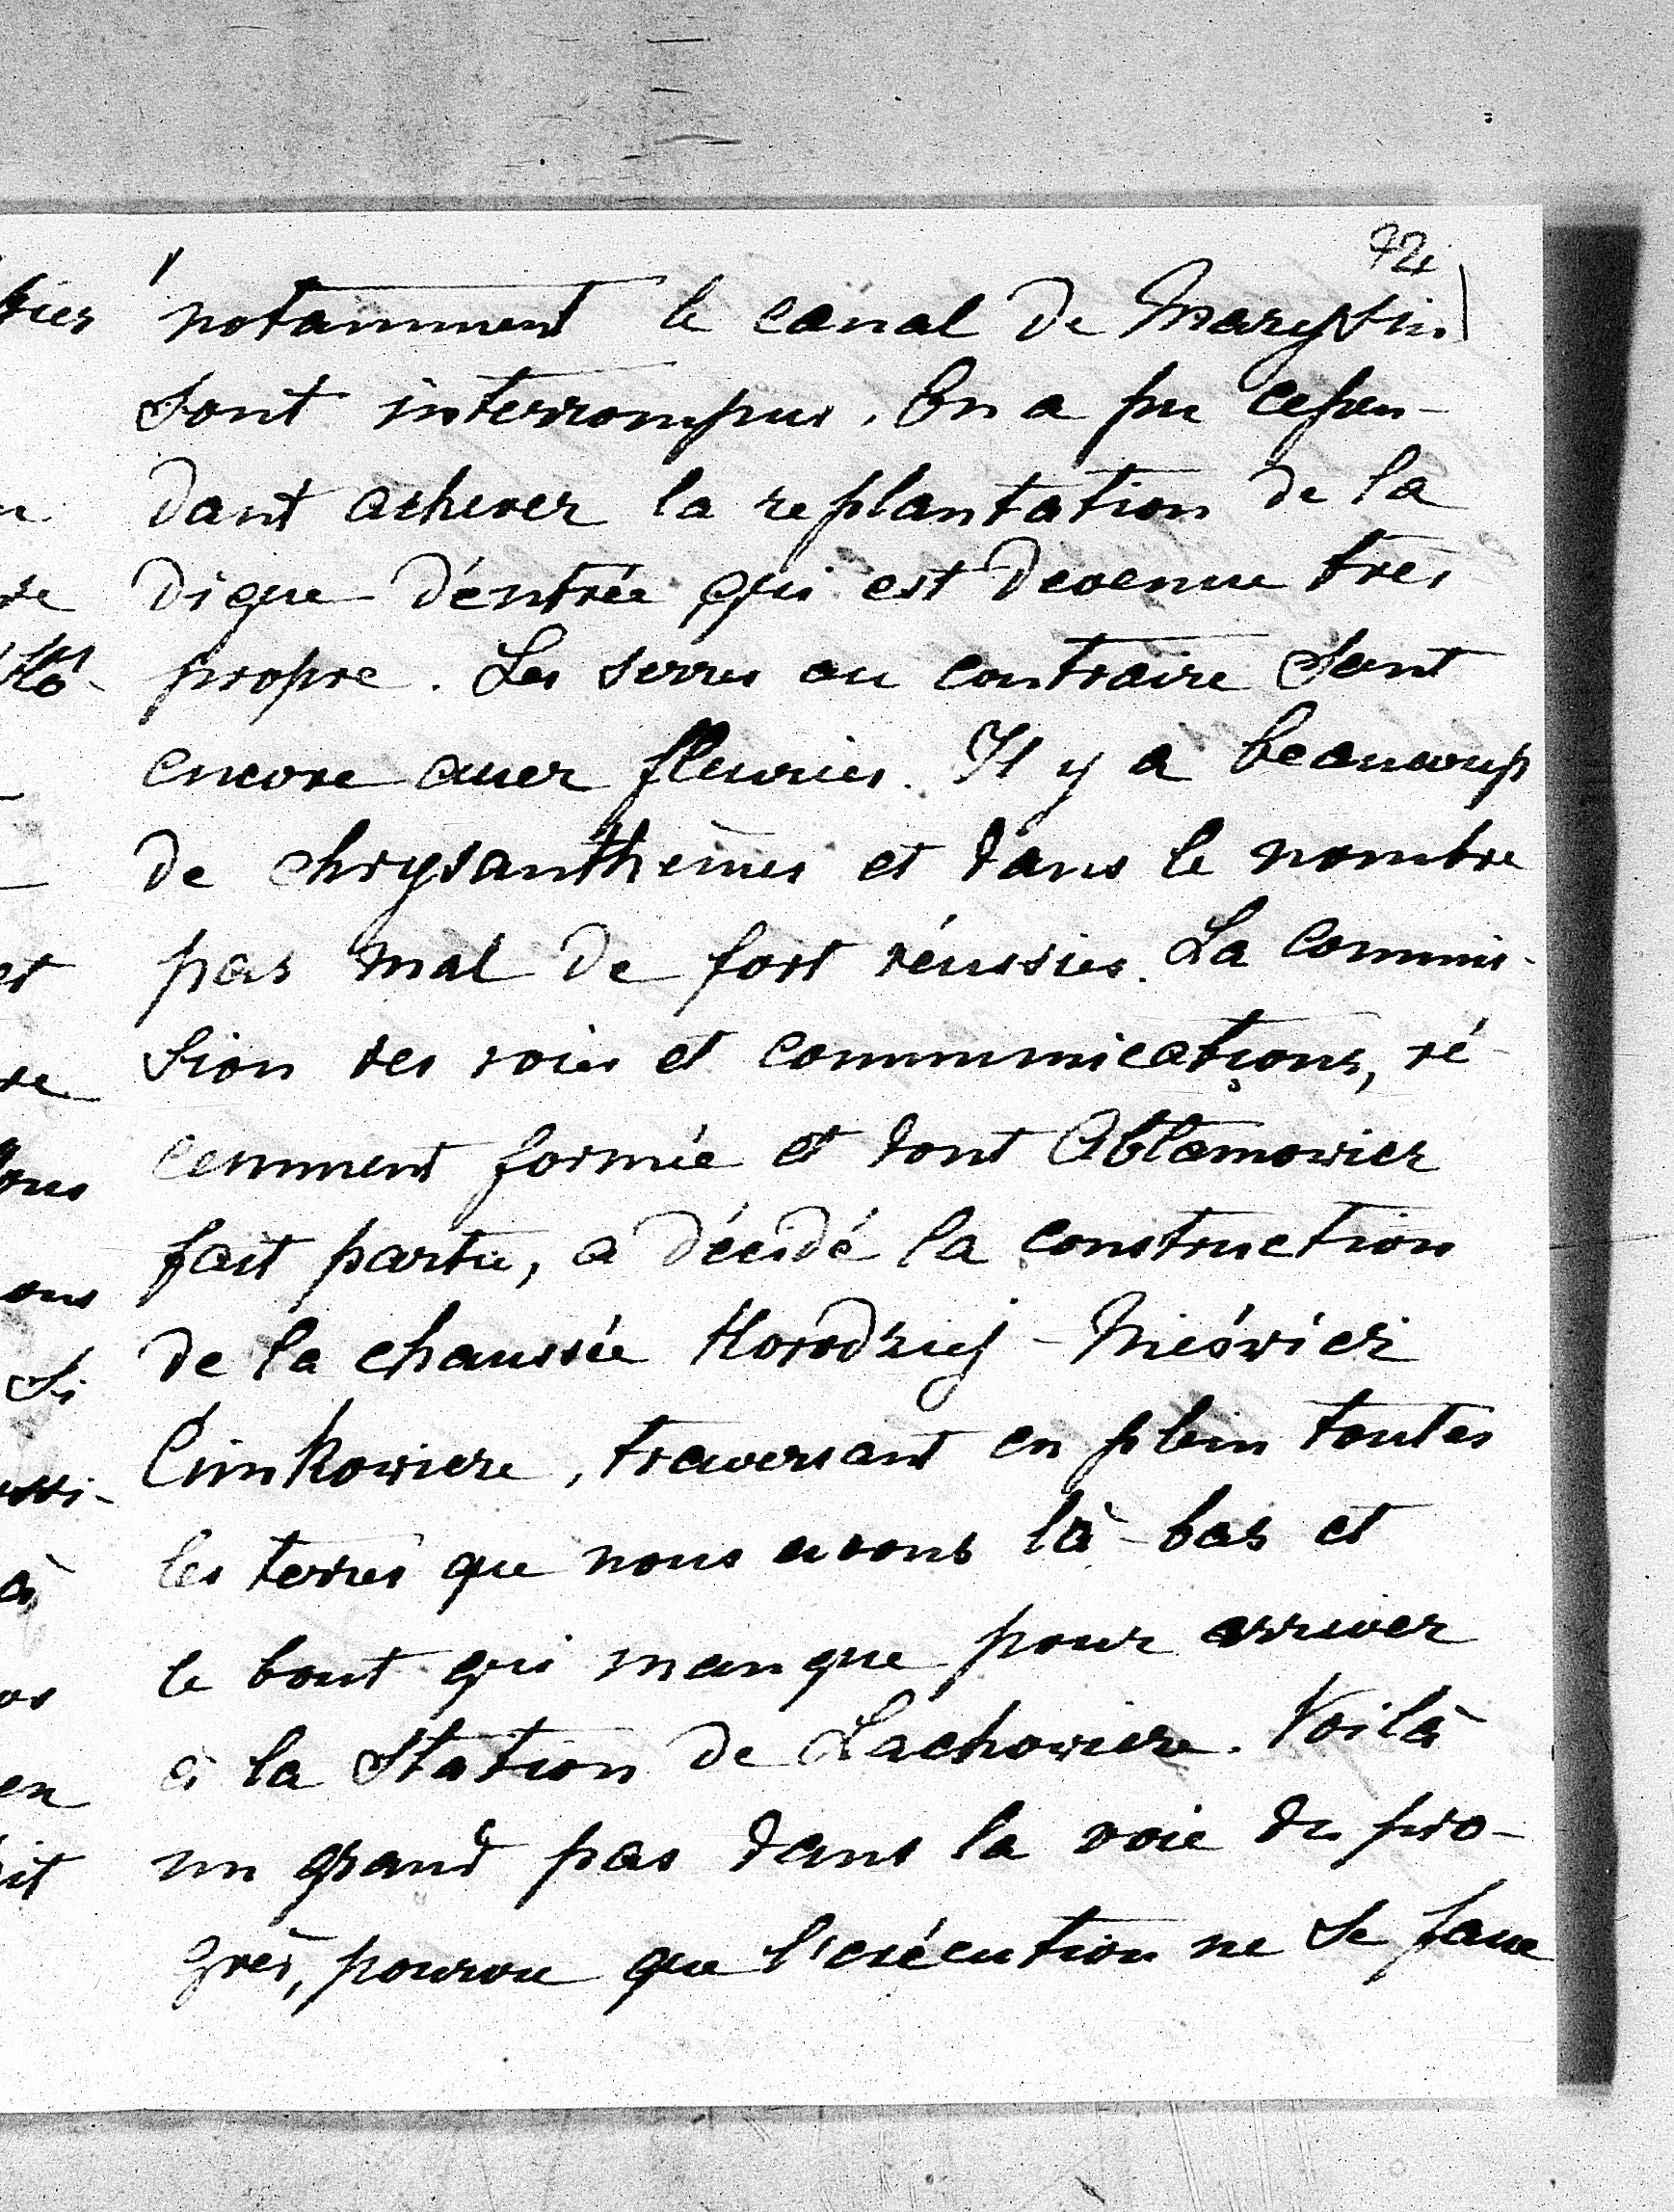 72
notamment le canal de Marysin
sont interrompus. On a pu cepen-
dant achever la replantation de la
digue d'entrée qui est devenue très
propre. Les serres au contraire sont
encore assez fleuries. Il y a beaucoup
de chrysanthèmes et dans le nombre
pas mal de fort réussies. La commis-
sion des voies et communications, ré-
cemment formée et dont Abłamowicz
fait partie, a décidé la construction
de la chaussée Horodziej - Nieśwież
Cimkowicze, traversant en plein toutes
les terres que nous avons là-bas et
le bout qui manque pour arriver
à la station de Lachowicze. Voilà
un grand pas dans la voie du pro-
grès, pourvu que l'exécution ne se fasse